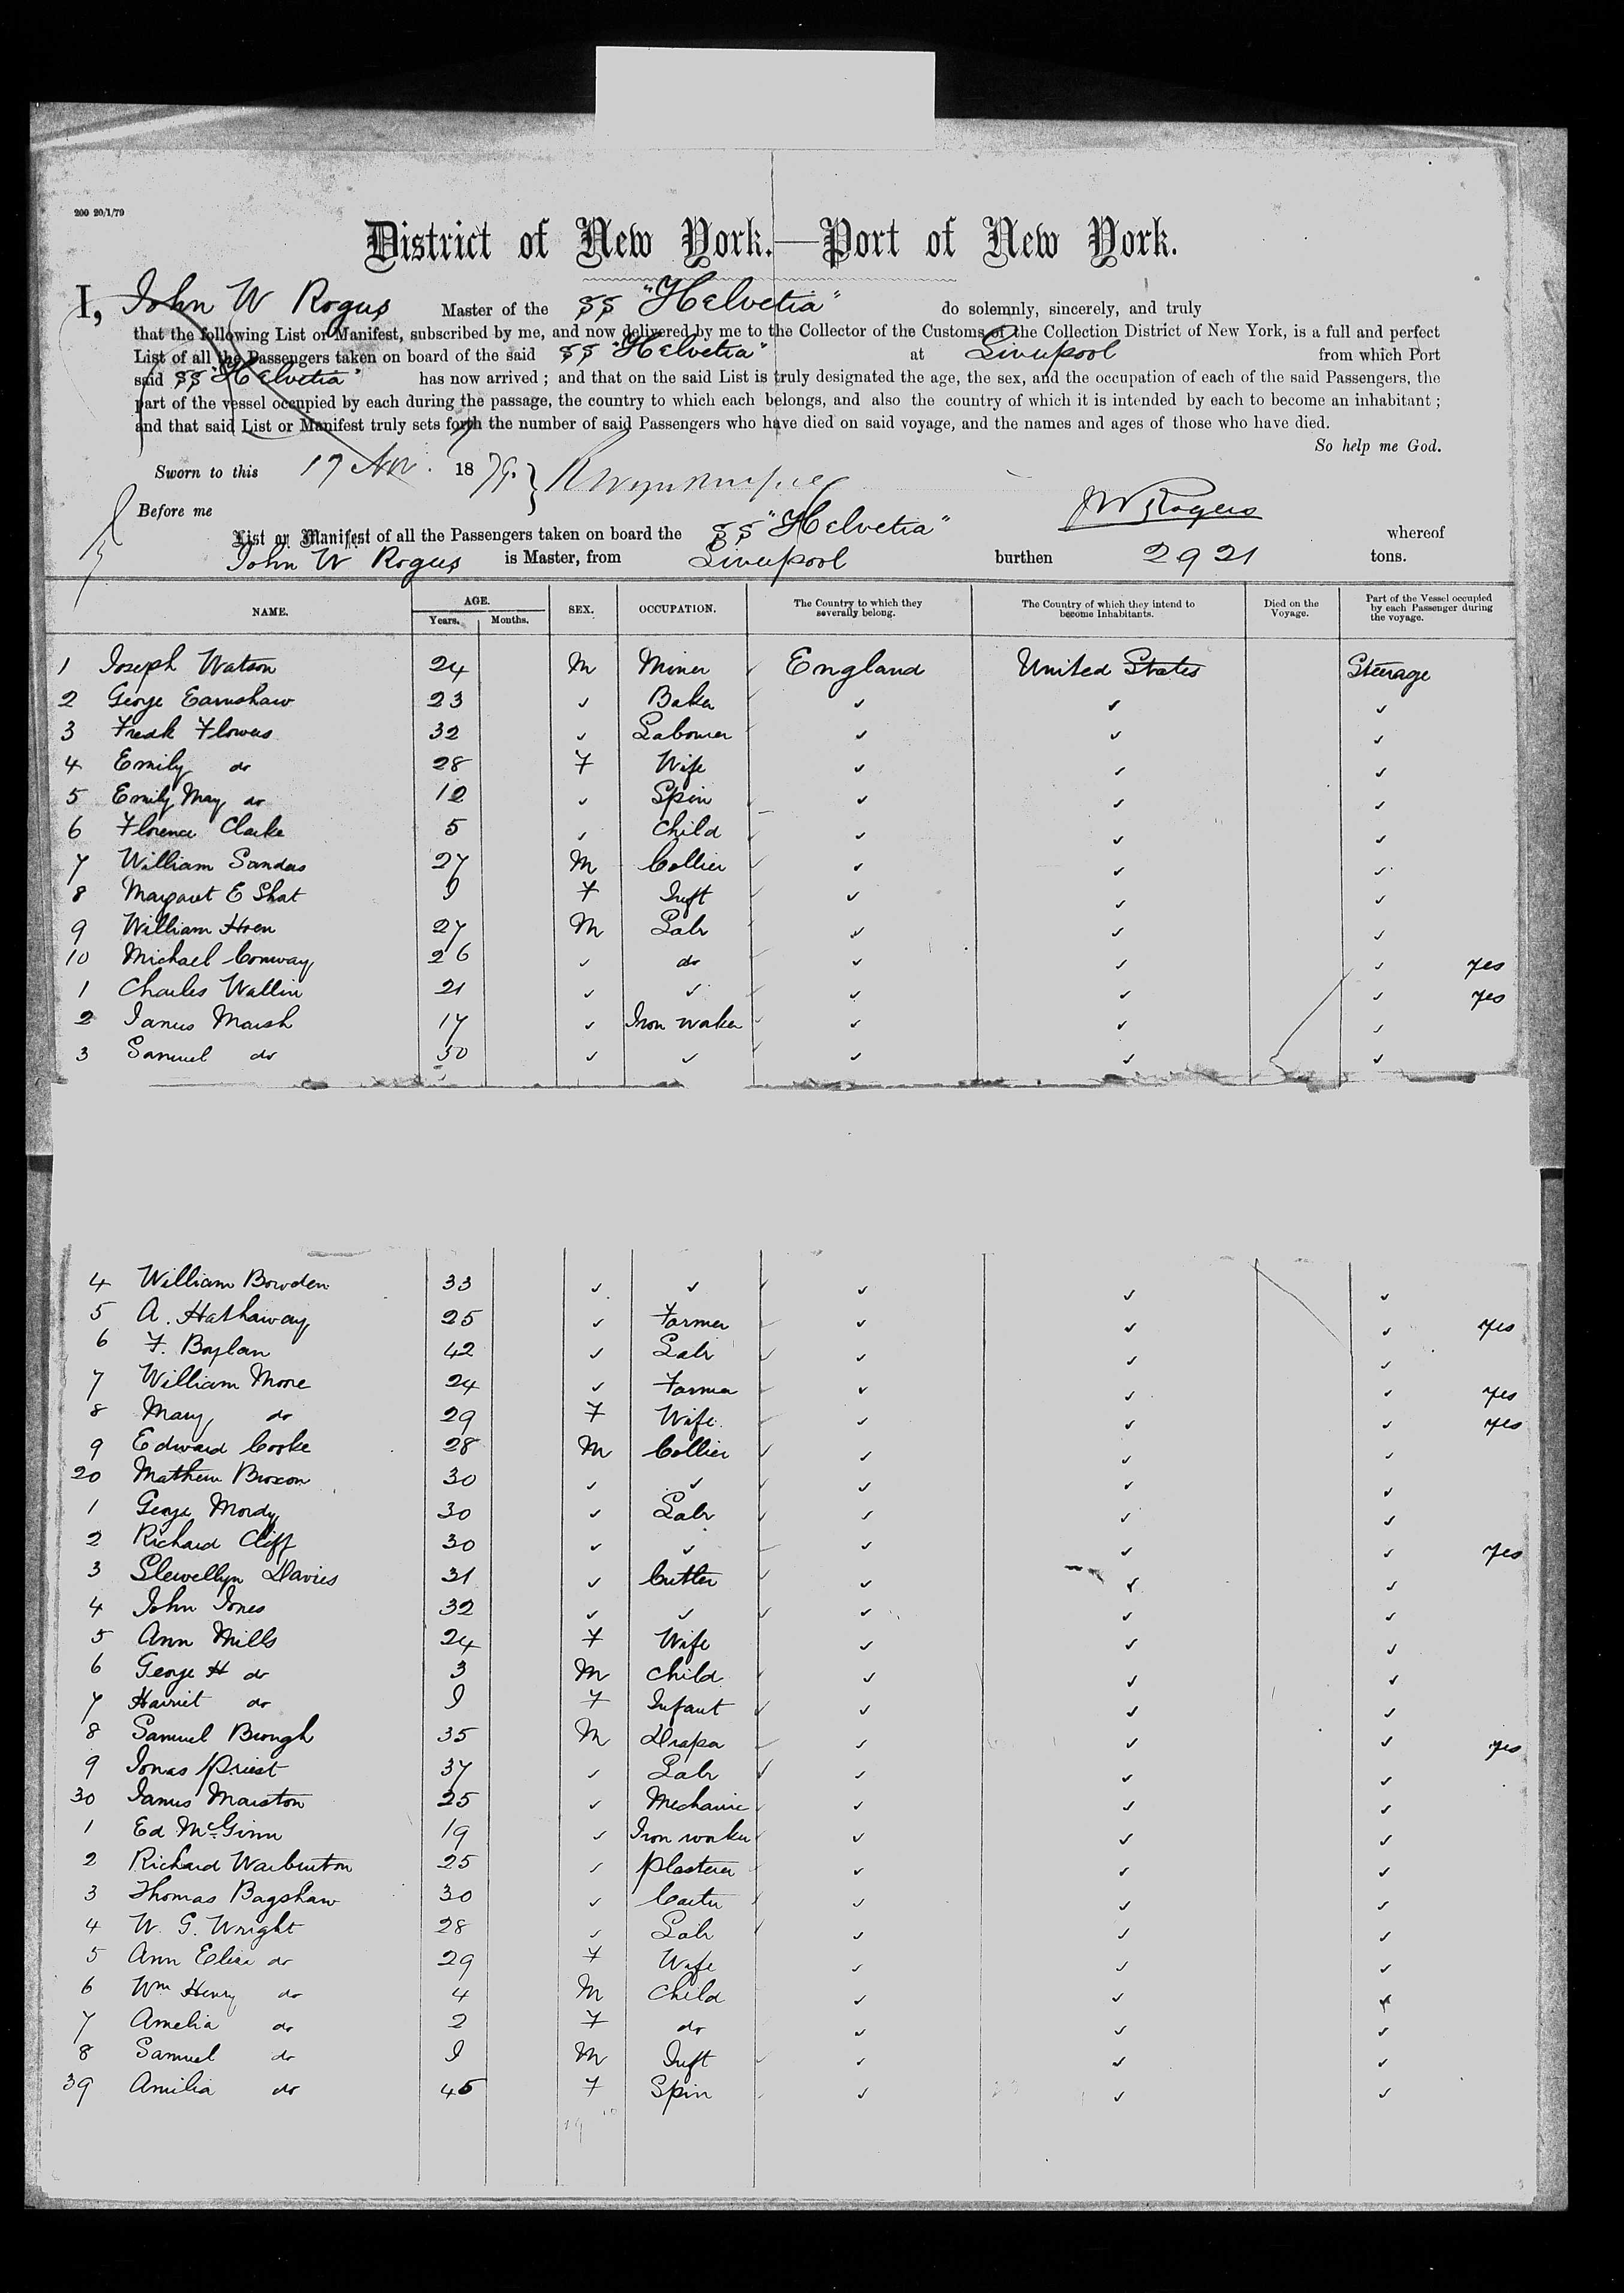 200 20/1/79
District of New York.—Port of New York.
I, John W Rogers Master of the SS "Helvetia" do solemnly, sincerely, and truly
that the following List or Manifest, subscribed by me, and now delivered by me to the Collector of the Customs of the Collection District of New York, is a full and perfect
List of all the Passengers taken on board of the said SS "Helvetia" at Liverpool from which Port
said SS "Helvetia" has now arrived; and that on the said List is truly designated the age, the sex, and the occupation of each of the said Passengers, the
part of the vessel occupied by each during the passage, the country to which each belongs, and also the country of which it is intended by each to become an inhabitant;
and that said List or Manifest truly sets forth the number of said Passengers who have died on said voyage, and the names and ages of those who have died.
So help me God.
Sworn to this 17 Nov. 1879.
J W Rogers
Before me
List or Manifest of all the Passengers taken on board the SS "Helvetia" whereof
John W Rogers is Master, from Liverpool burthen 2921 tons.
NAME. AGE. Years. Months. SEX. OCCUPATION. The Country to which they severally belong. The Country of which they intend to become Inhabitants. Died on the Voyage. Part of the Vessel occupied by each Passenger during the voyage.
1 Joseph Watson 24 M Miner ✓ England United States Steerage
2 George Earnshaw 23 ✓ Baker ✓ ✓ ✓ ✓
3 Fredk Flowers 32 ✓ Labourer ✓ ✓ ✓ ✓
4 Emily do 28 F Wife ✓ ✓ ✓
5 Emily May do 12 ✓ Spin ✓ ✓ ✓
6 Florence Clarke 5 ✓ Child ✓ ✓ ✓ ✓
7 William Sanders 27 M Collier ✓ ✓ ✓ ✓
8 Margaret E Shat I F Inft ✓ ✓ ✓ ✓
9 William Hoen 27 M Labr ✓ ✓ ✓
10 Michael Conway 26 ✓ do ✓ ✓ ✓ yes
1 Charles Wallin 21 ✓ ✓ ✓ ✓ ✓ yes
2 James Marsh 17 ✓ Iron worker ✓ ✓ ✓ ✓
3 Samuel do 30 ✓ ✓ ✓ ✓ ✓ ✓
4 William Bowden 33 ✓ ✓ ✓ ✓ ✓ ✓
5 A. Hathaway 25 ✓ Farmer ✓ ✓ ✓ yes
6 F. Boylan 42 ✓ Labr ✓ ✓ ✓ ✓
7 William More 24 ✓ Farmer ✓ ✓ ✓ yes
8 Mary do 29 F Wife ✓ ✓ ✓ yes
9 Edward Cooke 28 M Collier ✓ ✓ ✓ ✓
20 Mathew Broxon 30 ✓ ✓ ✓ ✓ ✓ ✓
1 George Mordy 30 ✓ Labr ✓ ✓ ✓ ✓
2 Richard Cliff 30 ✓ ✓ ✓ ✓ ✓ yes
3 Llewellyn Davies 31 ✓ Cutler ✓ ✓ ✓ ✓
4 John Jones 32 ✓ ✓ ✓ ✓ ✓ ✓
5 Ann Mills 24 F Wife ✓ ✓ ✓
6 George H do 3 M Child ✓ ✓ ✓ ✓
7 Harriet do I F Infant ✓ ✓ ✓ ✓
8 Samuel Brough 35 M Draper ✓ ✓ ✓ yes
9 Jonas Priest 37 ✓ Labr ✓ ✓ ✓ ✓
30 James Marston 25 ✓ Mechanic ✓ ✓ ✓ ✓
1 Ed McGinn 19 ✓ Iron worker ✓ ✓ ✓ ✓
2 Richard Warburton 25 ✓ Plasterer ✓ ✓ ✓ ✓
3 Thomas Bagshaw 30 ✓ Carter ✓ ✓ ✓ ✓
4 W. G. Wright 28 ✓ Labr ✓ ✓ ✓ ✓
5 Ann Eliza do 29 F Wife ✓ ✓ ✓
6 Wm Henry do 4 M Child ✓ ✓ ✓
7 Amelia do 2 F do ✓ ✓ ✓
8 Samuel do I M Inft ✓ ✓ ✓ ✓
39 Amilia do 45 F Spin ✓ ✓ ✓